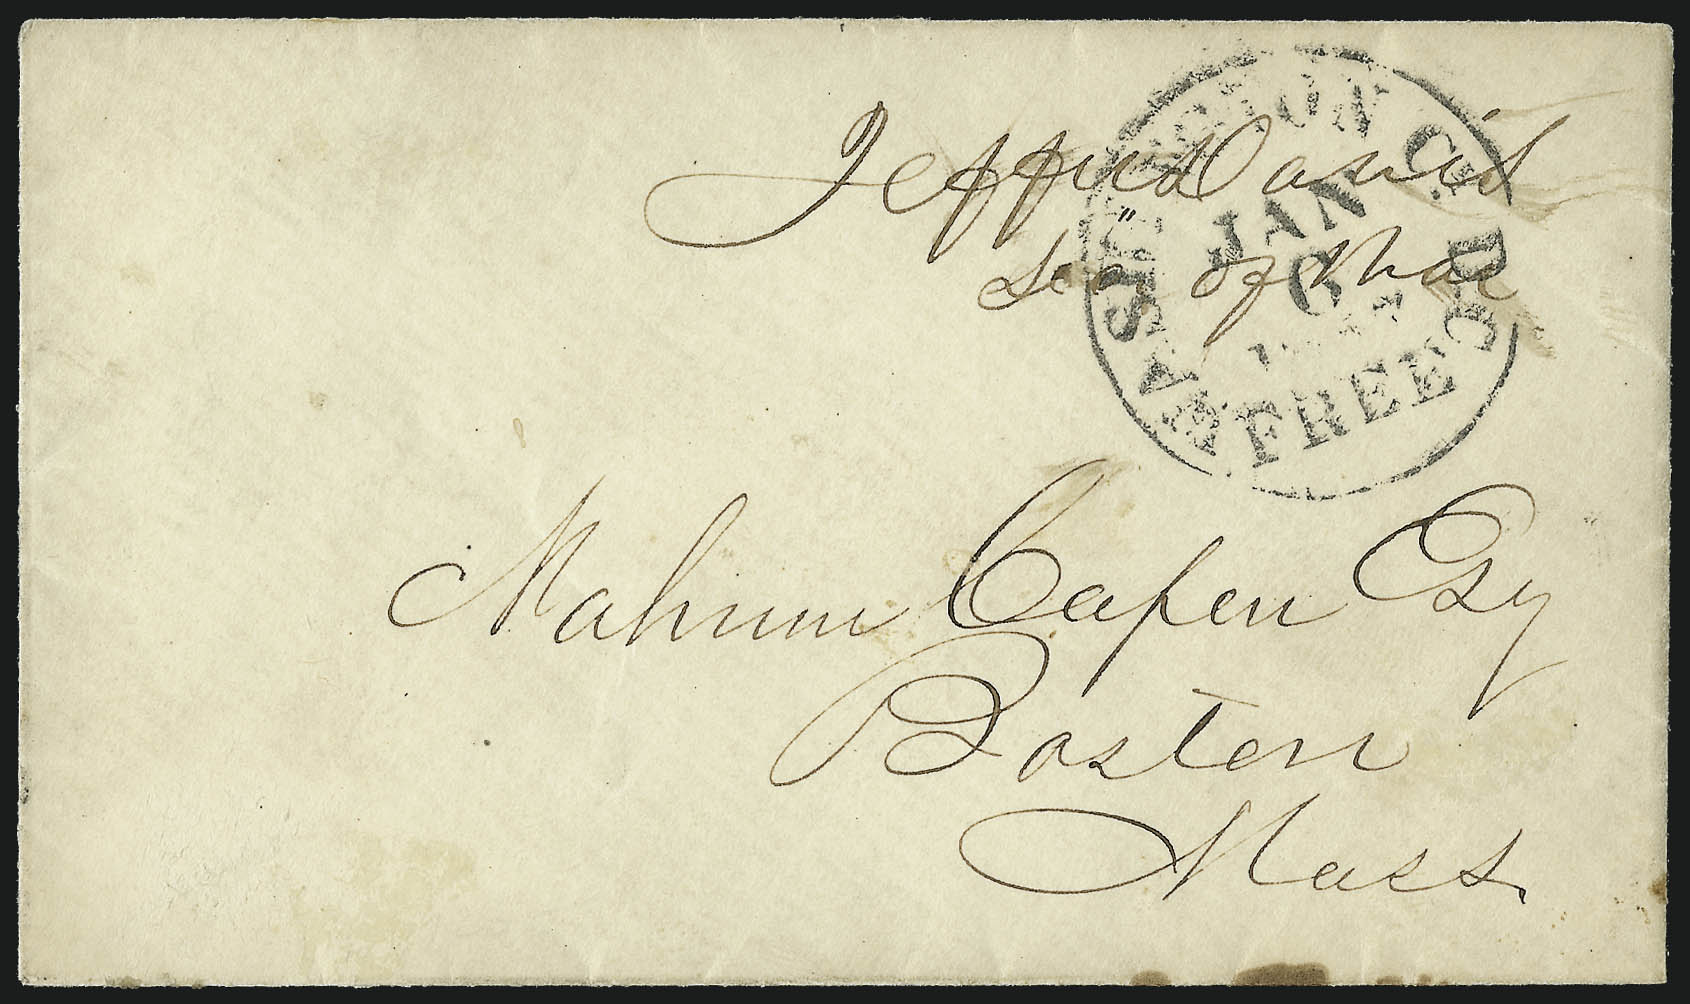 Jeffn Davis
Sec, of War
WASHINGTON CITY D.C.
JAN
6
FREE
Nahum Capen Esq
Boston
Mass.